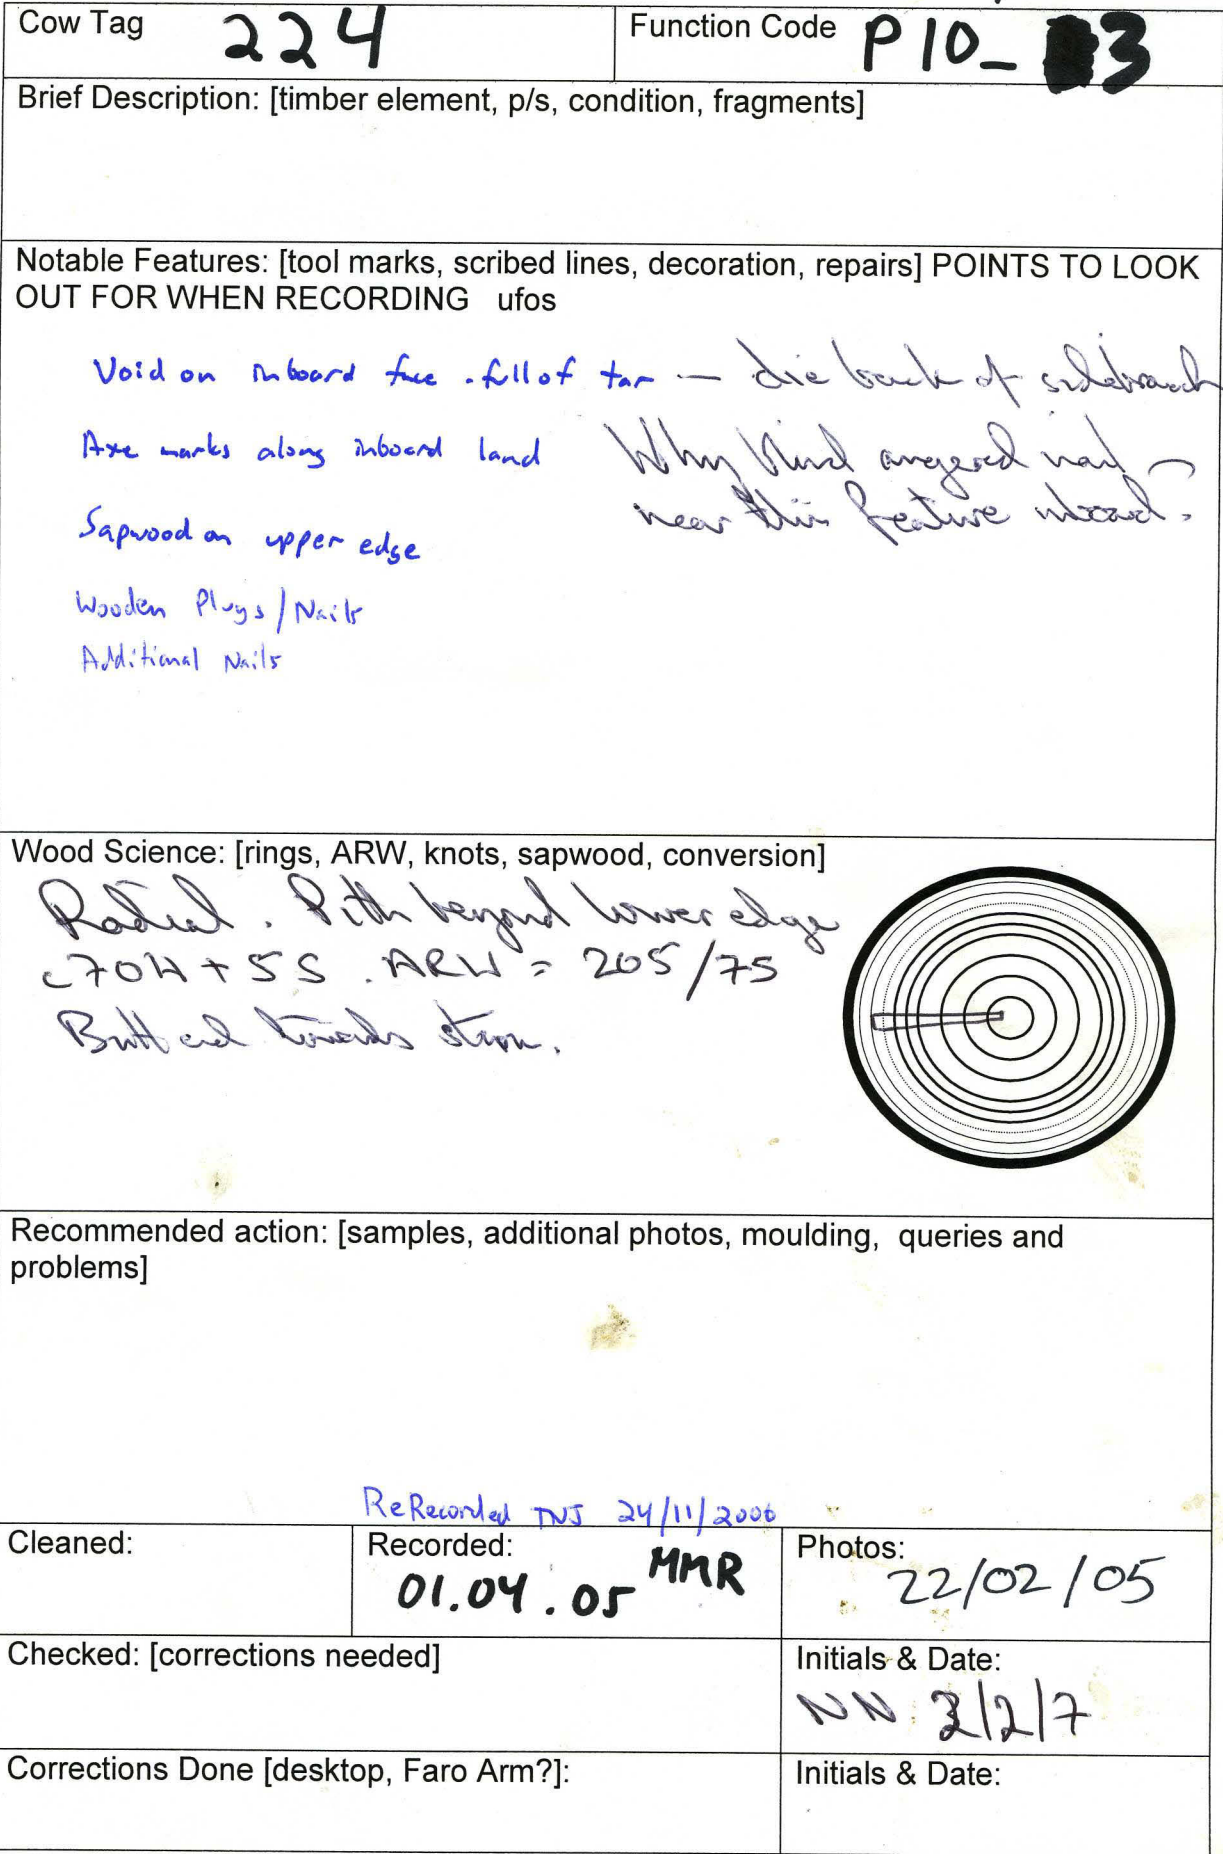 Cow Tag 224 Function Code P10_3
Brief Description: [timber element, p/s, condition, fragments]
Notable Features: [tool marks, scribed lines, decoration, repairs] POINTS TO LOOK
OUT FOR WHEN RECORDING ufos
Void on inboard face . full of tar — die back of sidebranch
Axe marks along inboard land Why blind augered nail
near this feature inboard.
Sapwood on upper edge
Wooden Plugs/Nails
Additional Nails
Wood Science: [rings, ARW, knots, sapwood, conversion]
Radial. Pith beyond lower edge
c70H + 5S. ARW = 205/75
Butt end towards stern.
Recommended action: [samples, additional photos, moulding, queries and
problems]
ReRecorded TNJ 24/11/2006
Cleaned: Recorded: Photos:
01.04.05 MMR 22/02/05
Checked: [corrections needed] Initials & Date:
NN 2/2/7
Corrections Done [desktop, Faro Arm?]: Initials & Date: